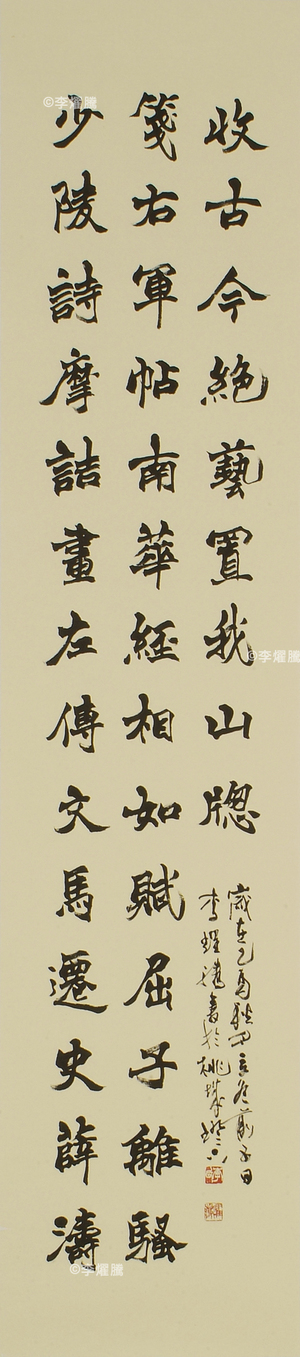 少陵詩摩詰畫左傳文馬遷史薛濤
箋右軍帖南華經相如賦屈子離騷
收古今絕藝置我山牕
歲在乙酉秋
李燿騰書於桃城
©李燿騰
©李燿騰
©李燿騰